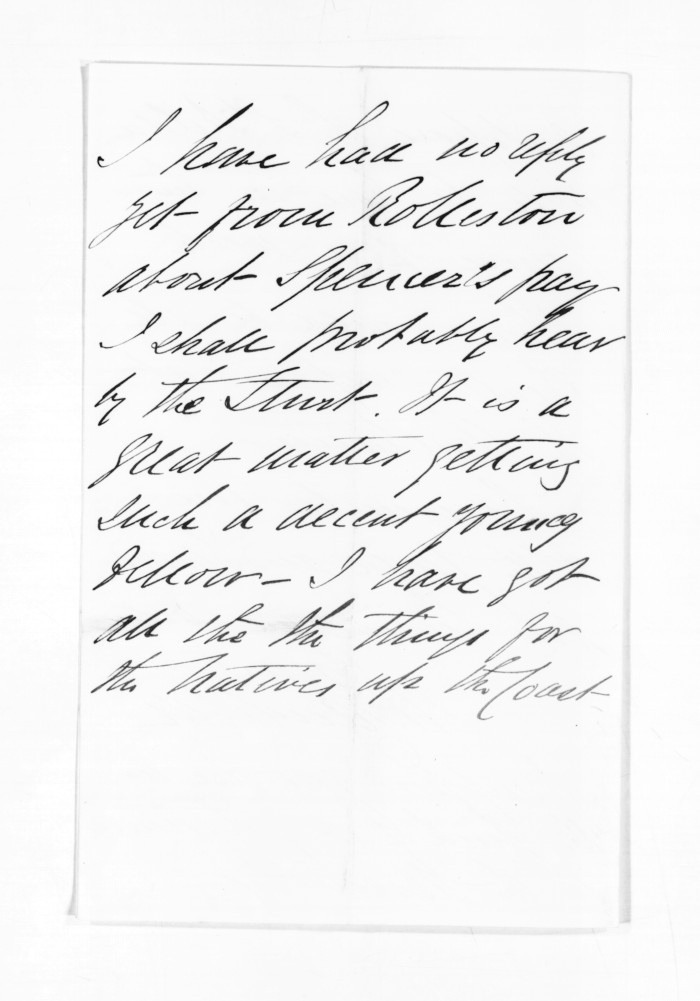 I have had no reply
yet from Rolleston
about Spencer's pay
I shall probably hear
by the Sturt. It is a
great matter getting
such a decent young
fellow - I have got
all the the things for
the Natives up the Coast